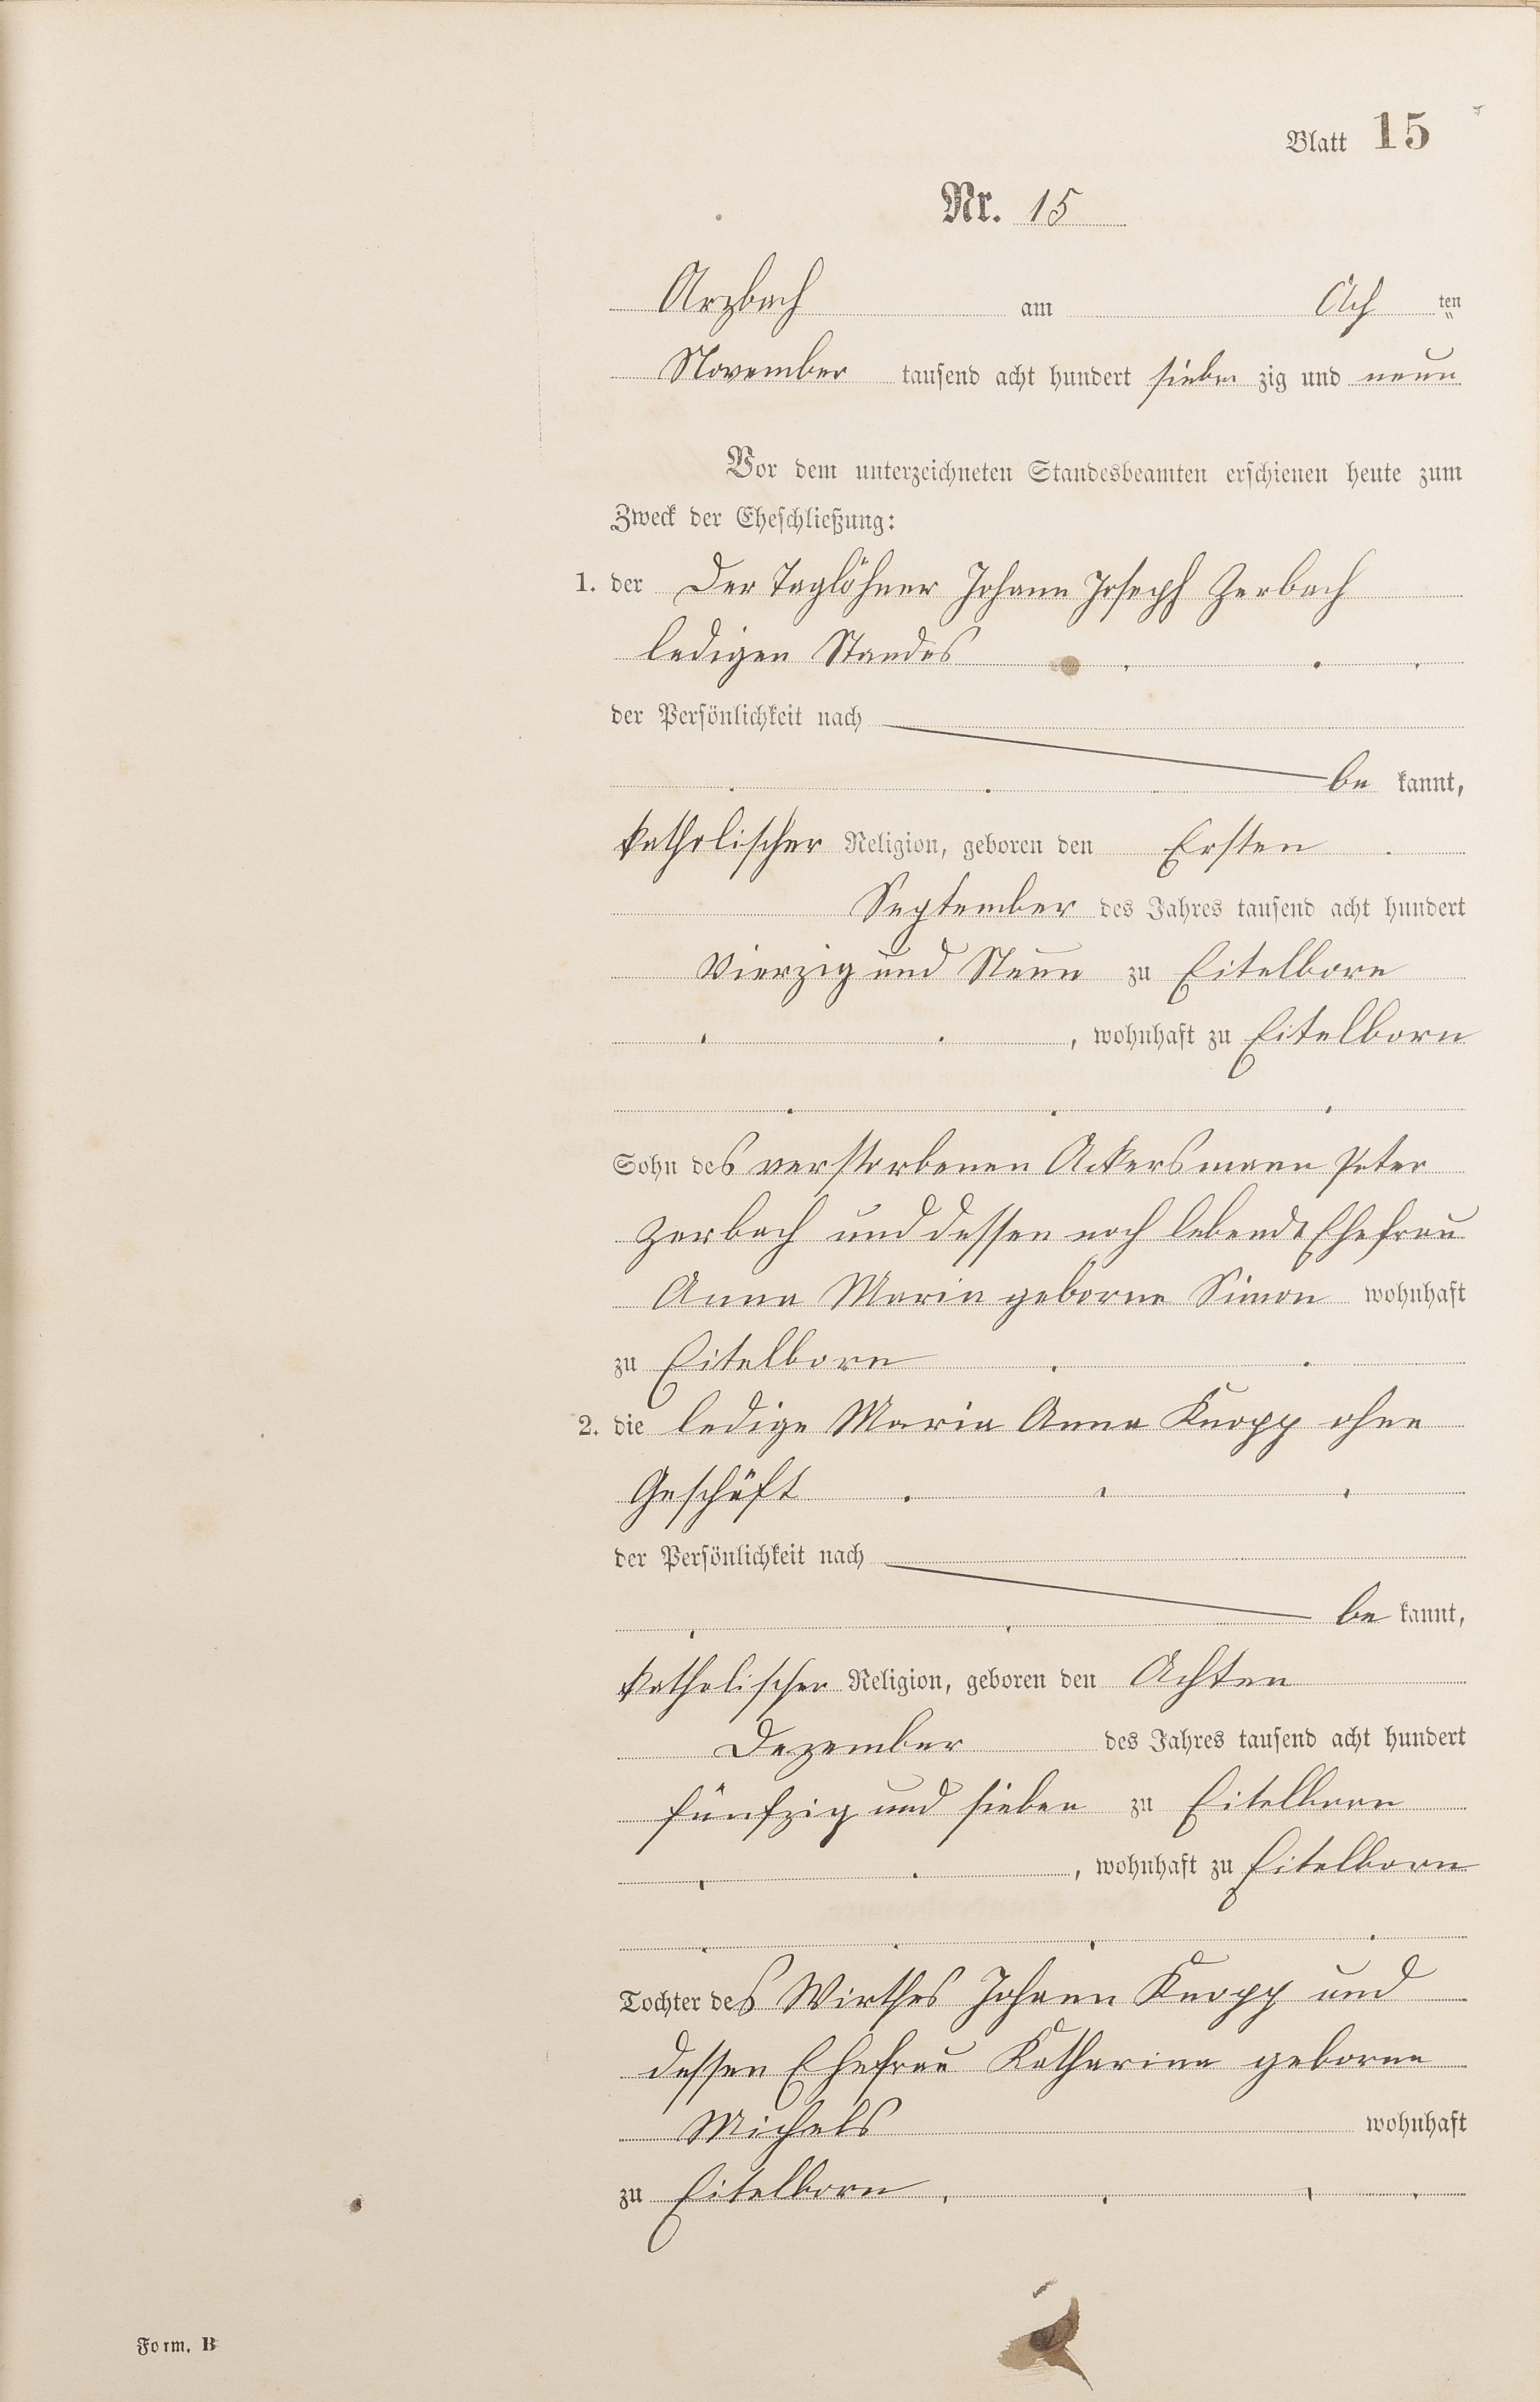 Blatt 15
Nr. 15
Arzbach am Ach ten
November tausend acht hundert sieben zig und neun
Vor dem unterzeichneten Standesbeamten erschienen heute zum
Zweck der Eheschließung:
1. der Der Taglöhner Johann Joseph Zerbach
ledigen Standes
der Persönlichkeit nach
be kannt,
katholischer Religion, geboren den Ersten
September des Jahres tausend acht hundert
Vierzig und Neun zu Eitelborn
, wohnhaft zu Eitelborn
Sohn des verstorbenen Ackersmann Peter
Zerbach und dessen noch lebende Ehefrau
Anna Maria geborne Simon wohnhaft
zu Eitelborn
2. die ledige Maria Anna Knopp ohne
Geschäft
der Persönlichkeit nach
be kannt,
katholischer Religion, geboren den Achten
Dezember des Jahres tausend acht hundert
fünfzig und sieben zu Eitelborn
, wohnhaft zu Eitelborn
Tochter des Wirthes Johann Knopp und
dessen Ehefrau Katharina geborne
Michels wohnhaft
zu Eitelborn
Form. B